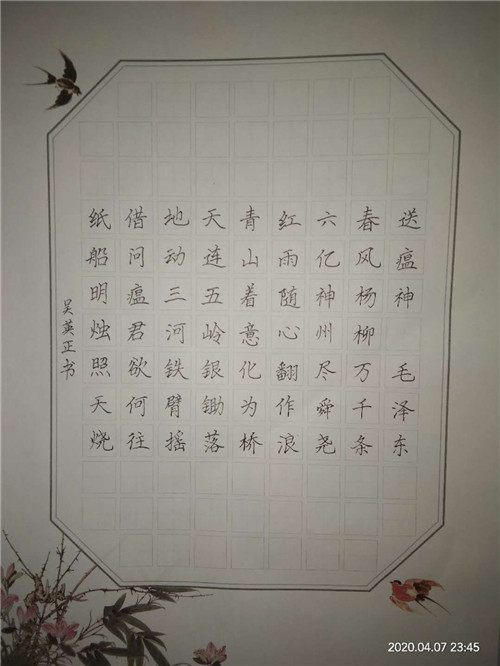 送瘟神 毛泽东
春风杨柳万千条
六亿神州尽舜尧
红雨随心翻作浪
青山着意化为桥
天连五岭银锄落
地动三河铁臂摇
借问瘟君欲何往
纸船明烛照天烧
吴英正书
2020.04.07 23:45